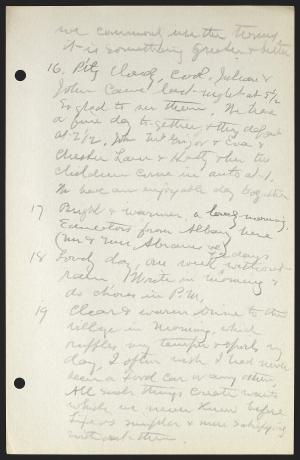 we commonly use the terms,
it is something greater & better
16. Ptly Cloudy, Cool. Julian &
John came last night at 5 1/2
So glad to see them. We have
a fine day together & they depart
at 2 1/2. John & Eva &
Chester Lane & & the
children come in auto at 1.
We have an enjoyable day together
17 Bright & warmer, a lovely morning.
from Albany here
(Mr & Mrs Abrams &
18 Lovely day, one week without
days
rain. Write in morning &
do chores in P.M.
19 Clear & warm. Drive to the
village in morning, which
ruffles my temper & spoils my
day, I often wish I had never
seen a Ford car or any other.
All such things create wants
which we never knew before
Life is simpler & more satisfying
without them.